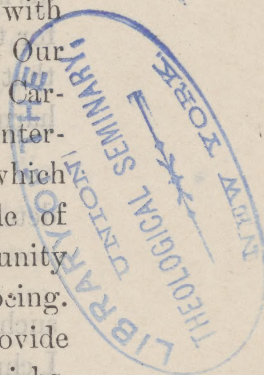 with
Our
Car-
nter-
which
le of
unity
oring.
ovide
LIBRARY OF THE
UNION
THEOLOGICAL SEMINARY,
NEW YORK